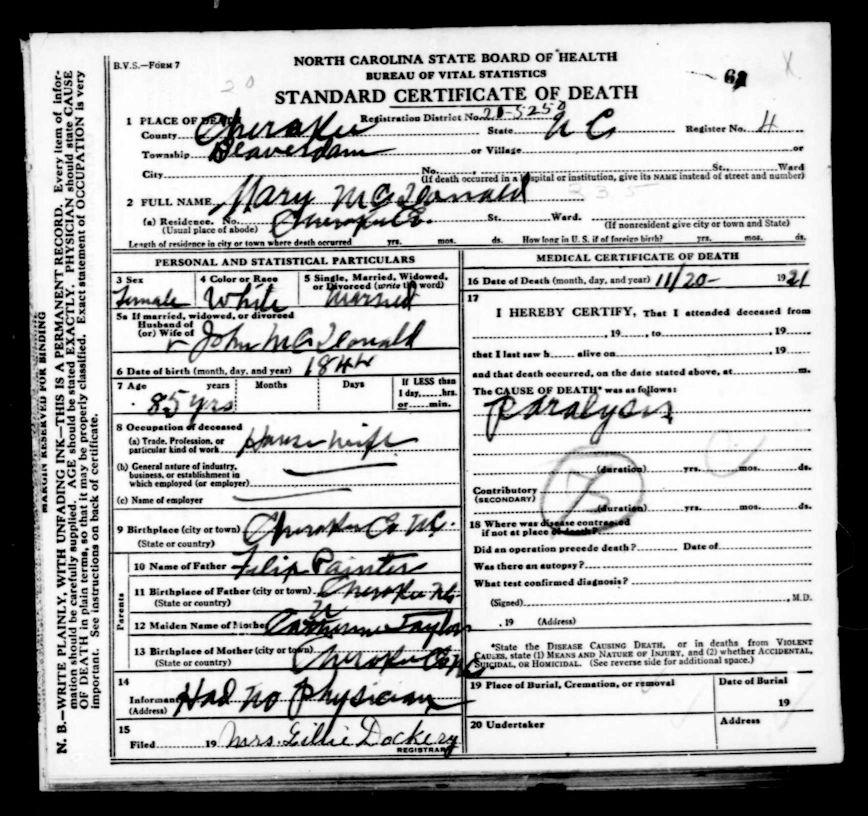 B.V.S.—FORM 7
NORTH CAROLINA STATE BOARD OF HEALTH
BUREAU OF VITAL STATISTICS
STANDARD CERTIFICATE OF DEATH
61
20
1 PLACE OF DEATH Registration District No. 20-5250
County Cherokee State N C Register No. 4
Township Beaverdam or Village or
City No. St., Ward
(If death occurred in a hospital or institution, give its NAME instead of street and number)
2 FULL NAME Mary McDonald 235
(a) Residence. No. Cherokee Co. St. Ward.
(Usual place of abode) (If nonresident give city or town and State)
Length of residence in city or town where death occurred yrs. mos. ds. How long in U. S. if of foreign birth? yrs. mos. ds.
PERSONAL AND STATISTICAL PARTICULARS
3 Sex 4 Color or Race 5 Single, Married, Widowed, or Divorced (write the word)
Female White Married
5a If married, widowed, or divorced
Husband of
(or) Wife of John McDonald
6 Date of birth (month, day, and year) 1844
7 Age years Months Days If LESS than 1 day, hrs. or min.
85 yrs
8 Occupation of deceased
(a) Trade, Profession, or
particular kind of work House wife
(b) General nature of industry,
business, or establishment in
which employed (or employer)
(c) Name of employer
9 Birthplace (city or town) Cherokee Co N.C.
(State or country)
Parents
10 Name of Father Filix Painter
11 Birthplace of Father (city or town) Cherokee NC
(State or country)
12 Maiden Name of Mother Catherine Taylor
13 Birthplace of Mother (city or town) Cherokee Co NC
(State or country)
14
Informant Had No Physician
(Address)
15
Filed 19 Mrs. Lillie Dockery
REGISTRAR
MEDICAL CERTIFICATE OF DEATH
16 Date of Death (month, day, and year) 11/20- 1921
17
I HEREBY CERTIFY, That I attended deceased from
, 19 , to , 19
that I last saw h alive on , 19
and that death occurred, on the date stated above, at m.
The CAUSE OF DEATH* was as follows:
Paralysis
(duration) yrs. mos. ds.
Contributory
(SECONDARY)
75
(duration) yrs. mos. ds.
18 Where was disease contracted
if not at place of death?
Did an operation precede death? Date of
Was there an autopsy?
What test confirmed diagnosis?
(Signed) , M.D.
, 19 (Address)
*State the DISEASE CAUSING DEATH, or in deaths from VIOLENT
CAUSES, state (1) MEANS AND NATURE OF INJURY, and (2) whether ACCIDENTAL,
SUICIDAL, OR HOMICIDAL. (See reverse side for additional space.)
19 Place of Burial, Cremation, or removal Date of Burial
19
20 Undertaker Address
MARGIN RESERVED FOR BINDING
N. B.—WRITE PLAINLY, WITH UNFADING INK—THIS IS A PERMANENT RECORD. Every item of infor-
mation should be carefully supplied. AGE should be stated EXACTLY. PHYSICIAN should state CAUSE
OF DEATH in plain terms, so that it may be properly classified. Exact statement of OCCUPATION is very
important. See instructions on back of certificate.